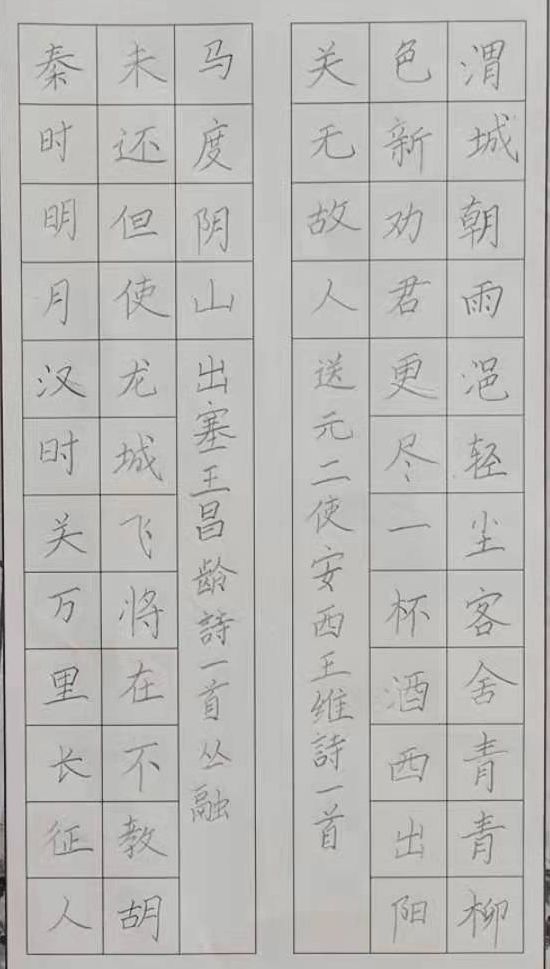 渭城朝雨浥轻尘客舍青青柳
色新劝君更尽一杯酒西出阳
关无故人
送元二使安西王维詩一首
秦时明月汉时关万里长征人
未还但使龙城飞将在不教胡
马度阴山
出塞王昌龄詩一首丛融